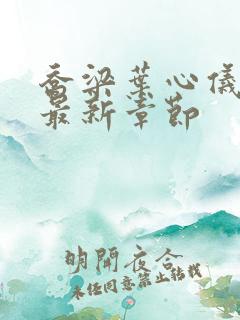 乔梁叶心仪
最新章节
明開夜合
未经同意禁止转载